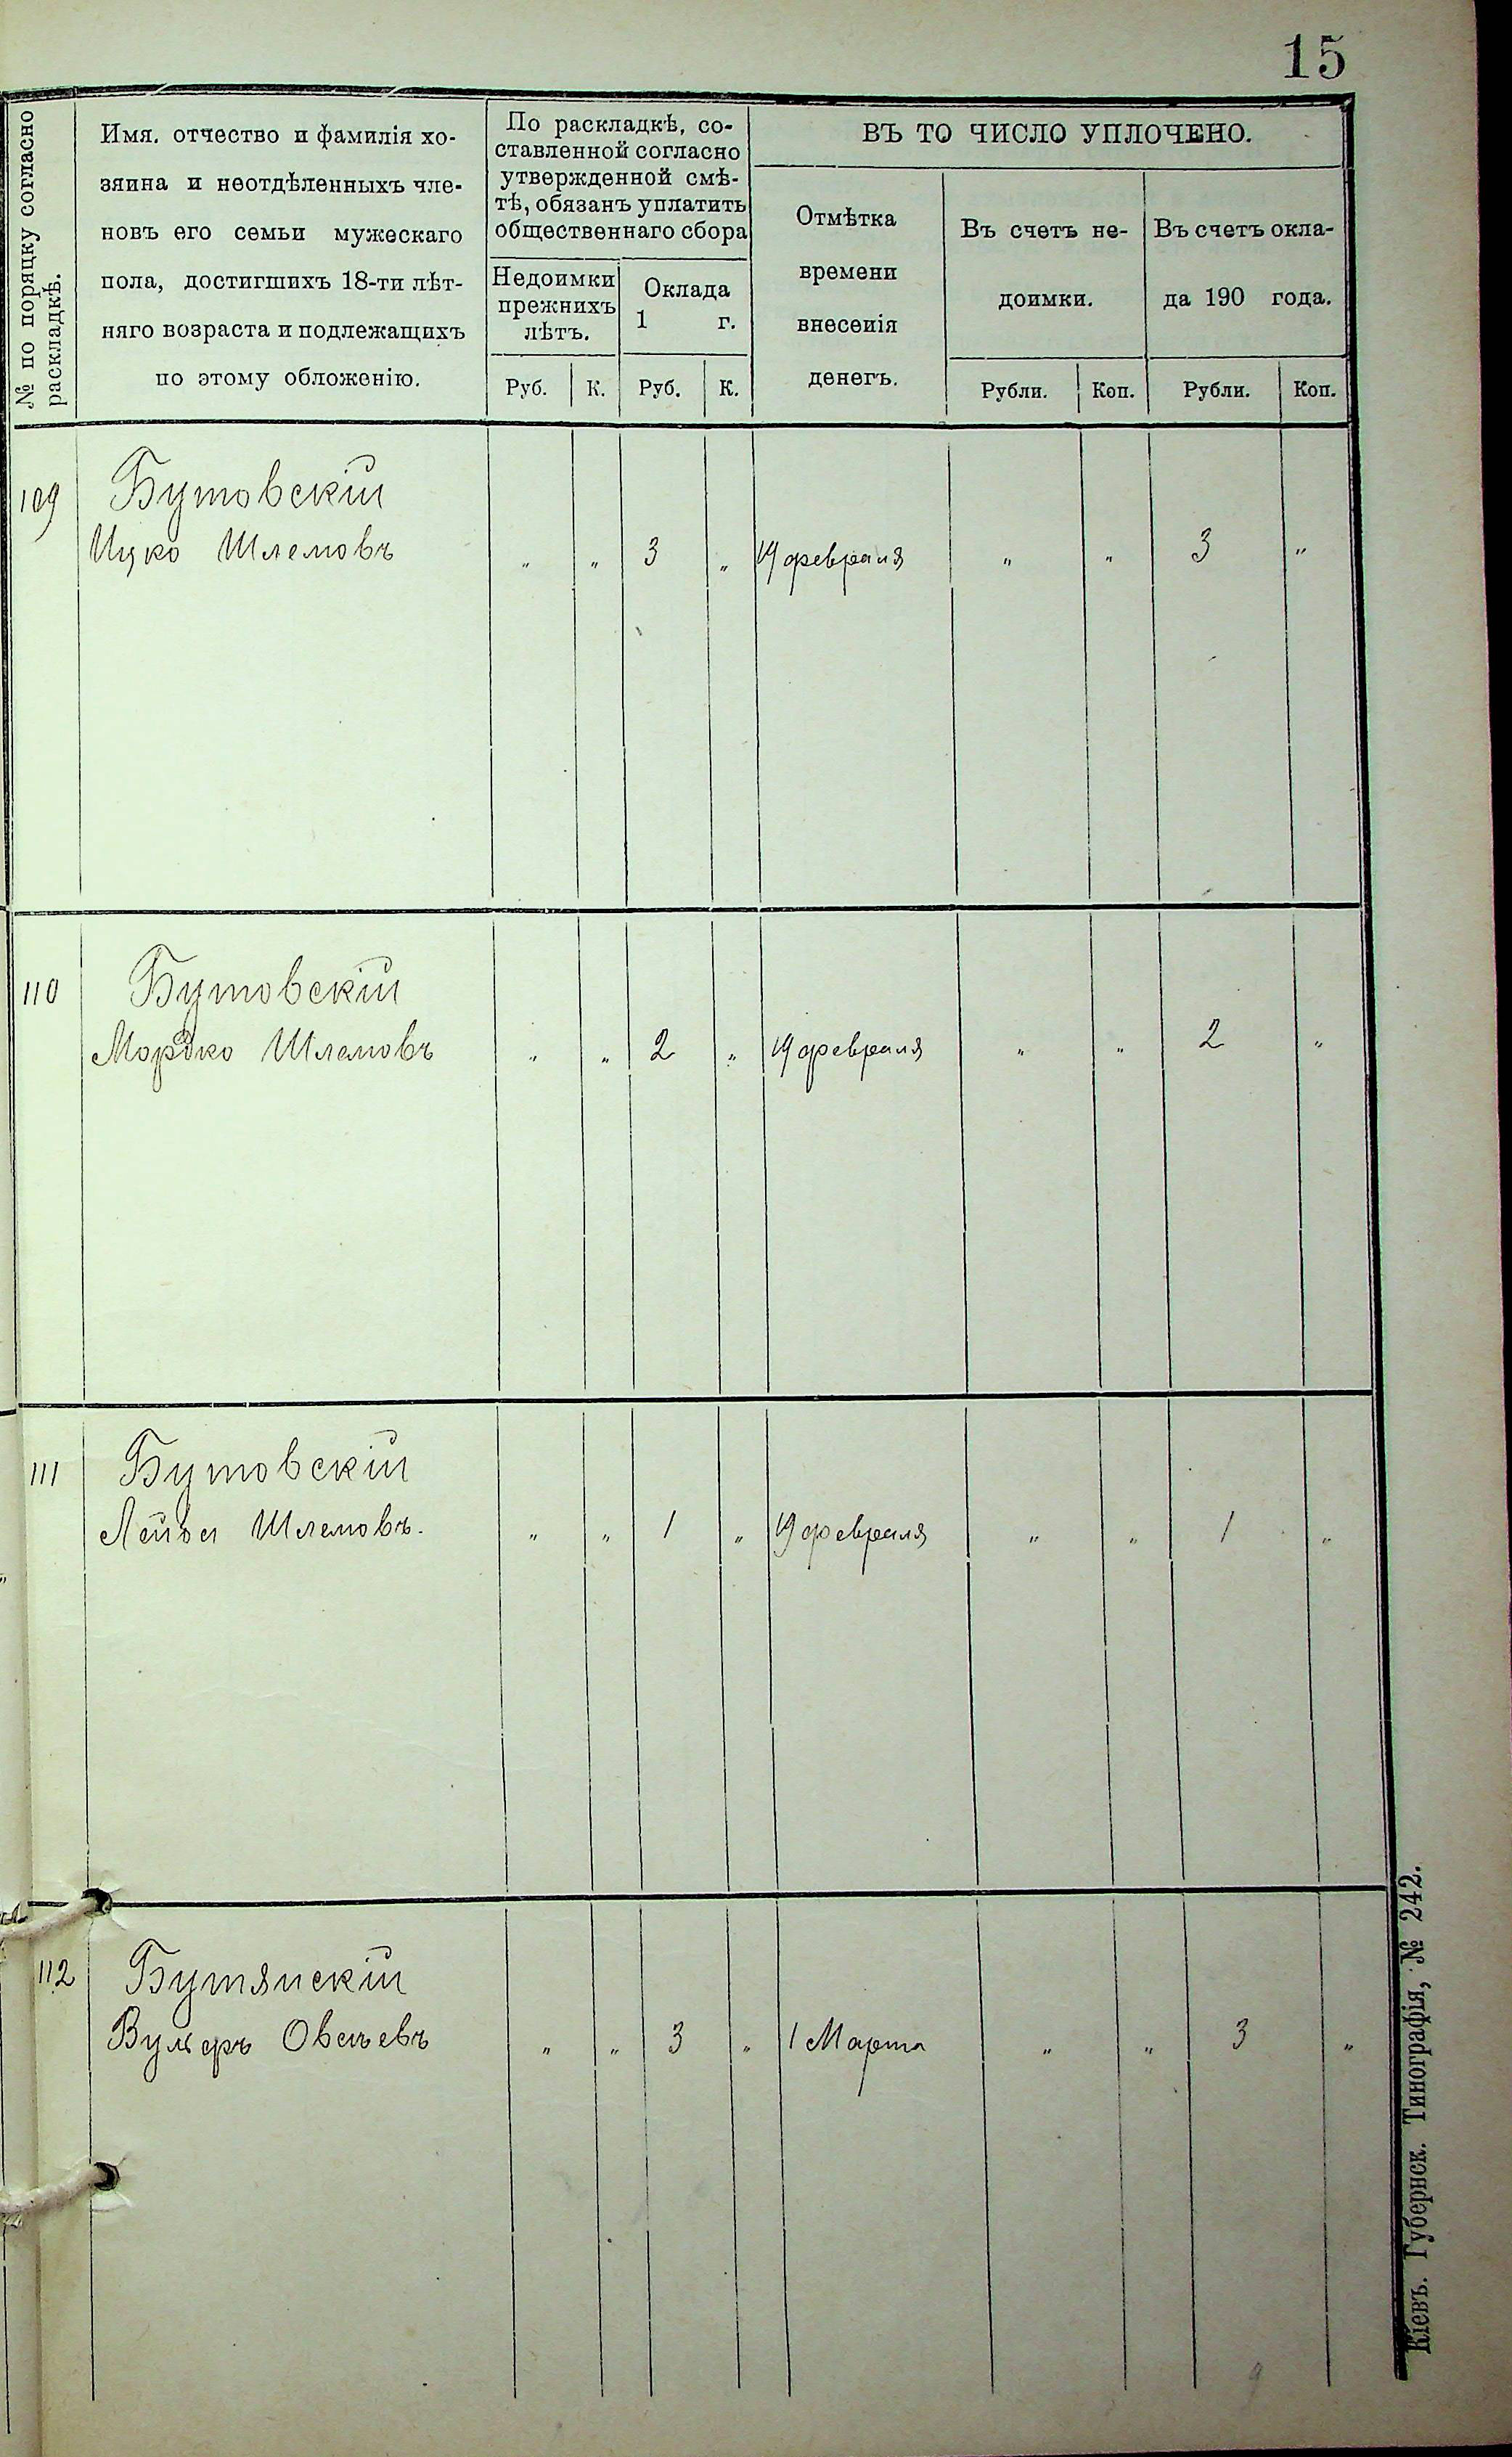 15
№ по порядку согласно
раскладкѣ.
Имя, отчество и фамилія хо-
зяина и неотдѣленныхъ чле-
новъ его семьи мужескаго
пола, достигшихъ 18-ти лѣт-
няго возраста и подлежащихъ
по этому обложенію.
По раскладкѣ, со-
ставленной согласно
утвержденной смѣ-
тѣ, обязанъ уплатить
общественнаго сбора
Недоимки
прежнихъ
лѣтъ.
Оклада
1 г.
Руб. К. Руб. К.
ВЪ ТО ЧИСЛО УПЛОЧЕНО.
Отмѣтка
времени
внесенія
денегъ.
Въ счетъ не-
доимки.
Въ счетъ окла-
да 190 года.
Рубли. Коп. Рубли. Коп.
109 Бутовскій
Ицко Шлемовъ „ „ 3 „ 19 февраля „ „ 3 „
110 Бутовскій
Мордко Шлемовъ „ „ 2 „ 19 февраля „ „ 2 „
111 Бутовскій
Лейба Шлемовъ. „ „ 1 „ 19 февраля „ „ 1 „
112 Бутянскій
Вульфъ Овсѣевъ „ „ 3 „ 1 Марта „ „ 3 „
Кіевъ. Губернск. Типографія, № 242.